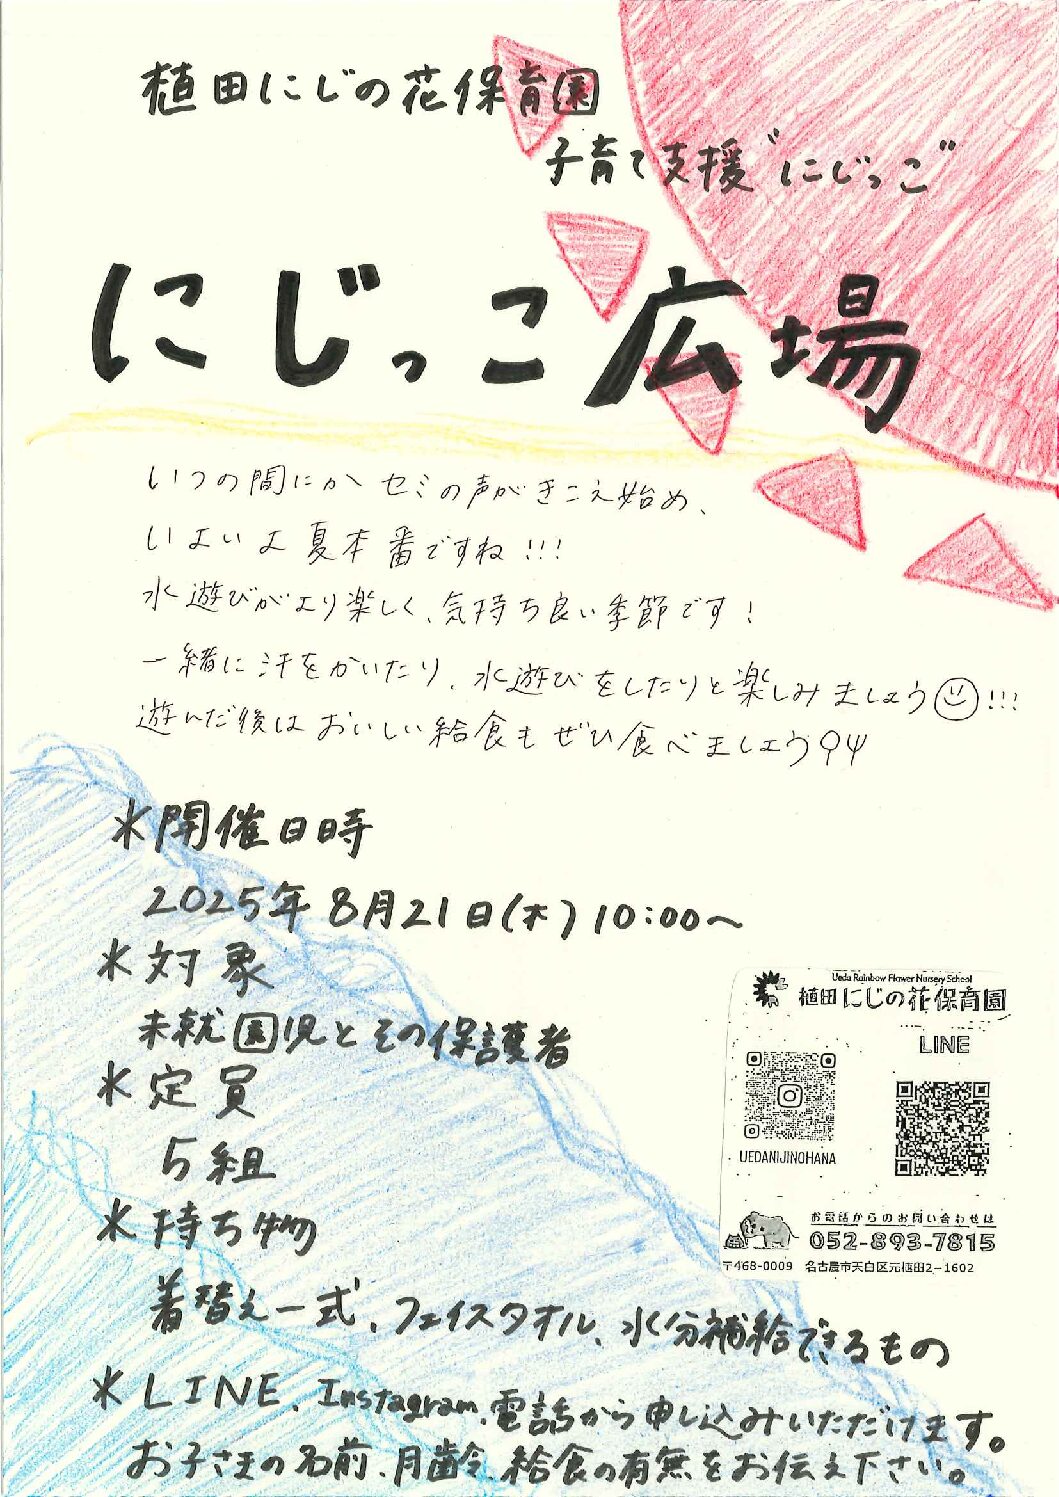 植田にじの花保育園
子育て支援“にじっこ”
にじっこ広場
いつの間にか セミの声がきこえ始め、
いよいよ夏本番ですね!!!
水遊びがより楽しく、気持ち良い季節です!
一緒に汗をかいたり、水遊びをしたりと楽しみましょう!!!
遊んだ後はおいしい給食もぜひ食べましょう
*開催日時
2025年 8月21日(木) 10:00~
*対象
未就園児とその保護者
*定員
5組
*持ち物
着替え一式、フェイスタオル、水分補給できるもの
*LINE、Instagram、電話から申し込みいただけます。
お子さまの名前、月齢、給食の有無をお伝え下さい。
Ueda Rainbow Flower Nursery School
植田にじの花保育園
LINE
UEDANIJINOHANA
お電話からのお問い合わせは
052-893-7815
〒468-0009 名古屋市天白区元植田2-1602